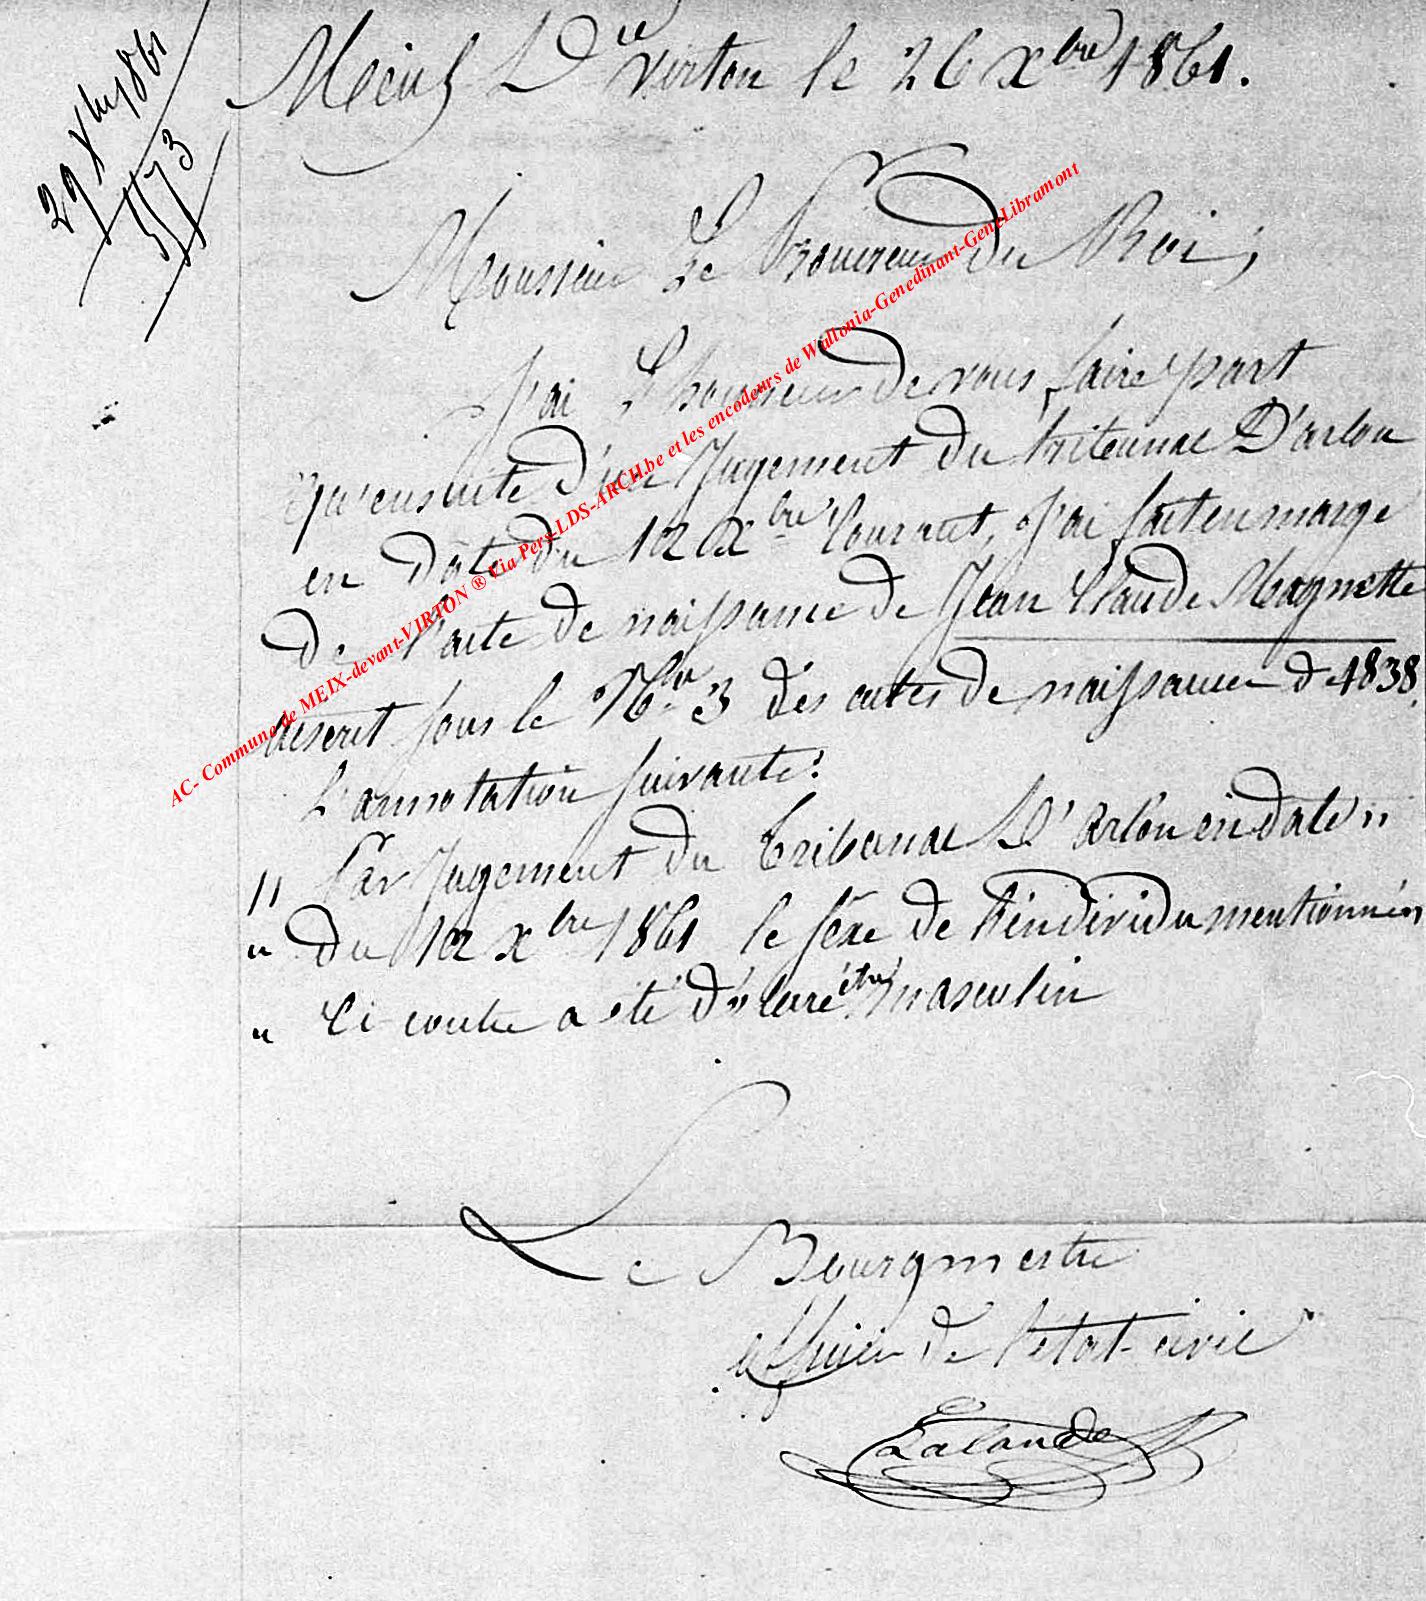 29 Xbre 1861
5573
Meix Dt Virton le 26 Xbre 1861.
Monsieur Le Procureur du Roi,
J'ai L'honneur de vous faire part
qu'ensuite d'un Jugement du tribunal D'arlon
en Date du 12 Xbre Courant, J'ai fait en marge
De l'acte de naissance de Jean Claude Magnette
inscrit sous le No 3 des actes de naissance de 1838.
L'annotation suivante:
" Par Jugement du Tribunal D'Arlon en date "
" Du 12 Xbre 1861 le sexe de l'individu mentionné "
" Ci contre a été déclaré être masculin
Le Bourgmestre
officier de l'état-civil
Lalande
AC- Commune de MEIX-devant-VIRTON ® Via Pers-LDS-ARCH.be et les encodeurs de Wallonia-Genedinant-Gen-Libramont